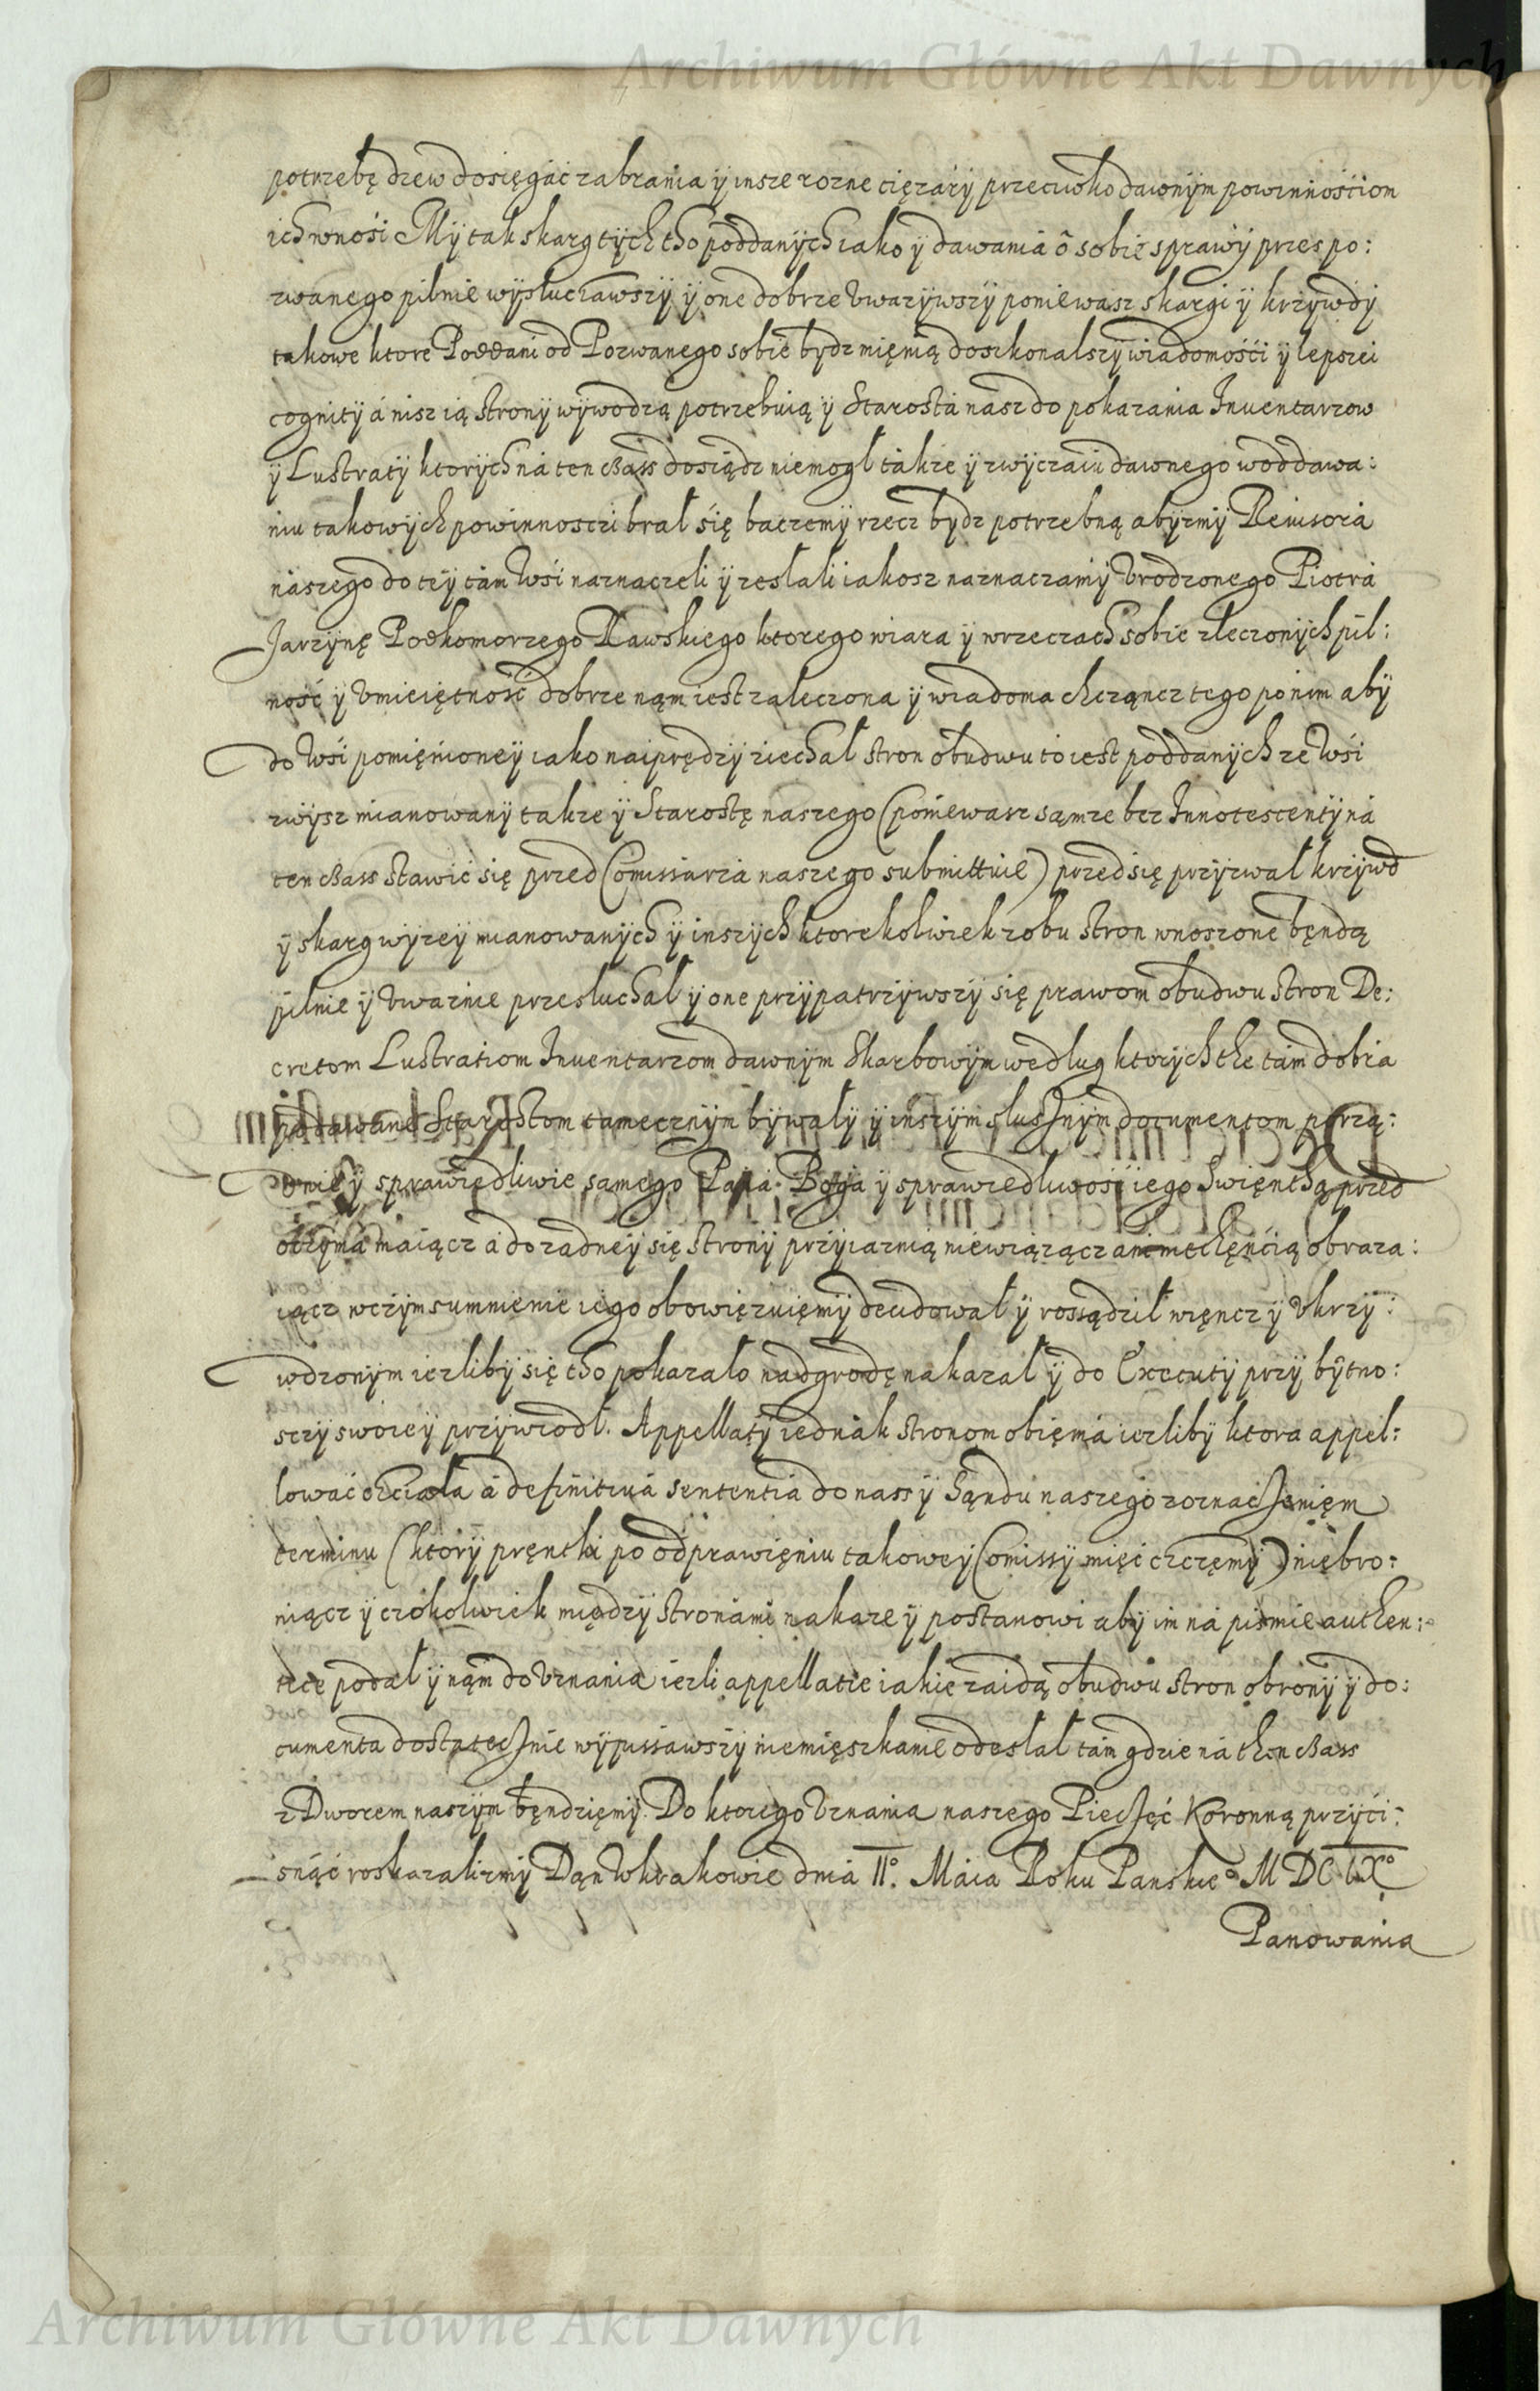 Archiwum Główne Akt Dawnych
potrzebę drew dosięgać zabrania ÿ insze rozne ciężarÿ przeciwko dawnÿm powinnośćiom
ich wnośi Mÿ tak skarg tÿch tho poddanÿch iako ÿ dawania o sobie sprawÿ przes po:
zwanego pilnie wÿsłuchawszÿ ÿ one dobrze vwazÿwszÿ poniewasz skargi ÿ krzÿwdÿ
takowe ktore Poddani od Pozwanego sobie bÿdz mięnią doskonalszÿ wiadomośći ÿ lepszei
cognitÿ á nisz ią stronÿ wÿwodzą potrzebuią ÿ Starosta nasz do pokazania Inuentarzow
ÿ Lustratÿ ktorÿch ná ten czass dosiądz niemogł także ÿ zwÿczaiu dawnego w oddawa:
niu takowÿch powinnosczi brał się baczemÿ rzecz bÿdz potrzebną abÿzmÿ Reuisora
nászego do tzÿ tám Wśi naznaczeli ÿ zesłali iakosz naznaczamÿ Vrodzonego Piotrá
Jarzÿnę Podkomorzego Rawskiego ktorego wiara ÿ w rzeczach sobie zleczonÿch pil:
ność ÿ vmieiętność dobrze nąm iest zaleczona ÿ wiadoma chcząncz tego po nim abÿ
do Wśi pomięnioneÿ iako naiprędzÿ ziechał stron obudwu to iest poddanÿch ze Wśi
zwÿsz mianowanÿ takze ÿ Starostę naszego (poniewasz sąm ze bez Innotescentÿ ná
ten czass stawić się przed Comissarza naszego submittuie) przed się przÿzwał krzÿwd
ÿ skarg wÿzeÿ mianowanÿch ÿ inszÿch ktorekolwiek z obu stron wnoszone będą
pilnie ÿ vwaznie przesłuchał ÿ one przÿpatrzÿwszÿ się prawom obudwu stron De:
cretom Lustratiom Inuentarzom dawnÿm Skarbowÿm według ktorÿch the tám dobra
podawane Starostom tamecznÿm bÿwałÿ ÿ inszÿm słusznÿm documentom porzą:
dnie ÿ sprawiedliwie samego Pana Boga ÿ sprawiedliwość iego Swięnthą przed
oczÿma maiącz á do zadneÿ się stronÿ przÿiaznią niewiążącz ani niechęncią obraza:
iącz w czÿm sumnienie iego obowięzuięmÿ decidował ÿ rossądził więncz ÿ vkrzÿ:
wdzonÿm iezlibÿ się tho pokazało nadgrodę nakazał ÿ do Executÿ przÿ bÿtno:
sczÿ swoieÿ przÿwiodł. Appellatÿ iednák stronom obięmá iezlibÿ ktora appel:
lować chciała á definitiuá sententia do nass ÿ Sąndu naszego z oznaczenięm
terminu (ktorÿ pręntki po odprawięniu takoweÿ Comissÿ mięć chczęmÿ) niębro:
niącz ÿ czokolwiek międzÿ stronámi nakaze ÿ postanowi abÿ im ná pismie authen:
tice podał ÿ nąm do vznania iezli appellatie iakie zaidą obudwu stron obronÿ ÿ do:
cumenta dostatecznie wÿpissawszÿ niemięszkanie odesłał tám gdzie ná then czass
z Dworem naszÿm będzięmÿ. Do ktorego vznania naszego Pieczęć Koronną przÿći:
snąć roskazalizmÿ Dąn w Krakowie dnia II°. Maia Roku Panskie° M DC IX°
Panowania
Archiwum Główne Akt Dawnych